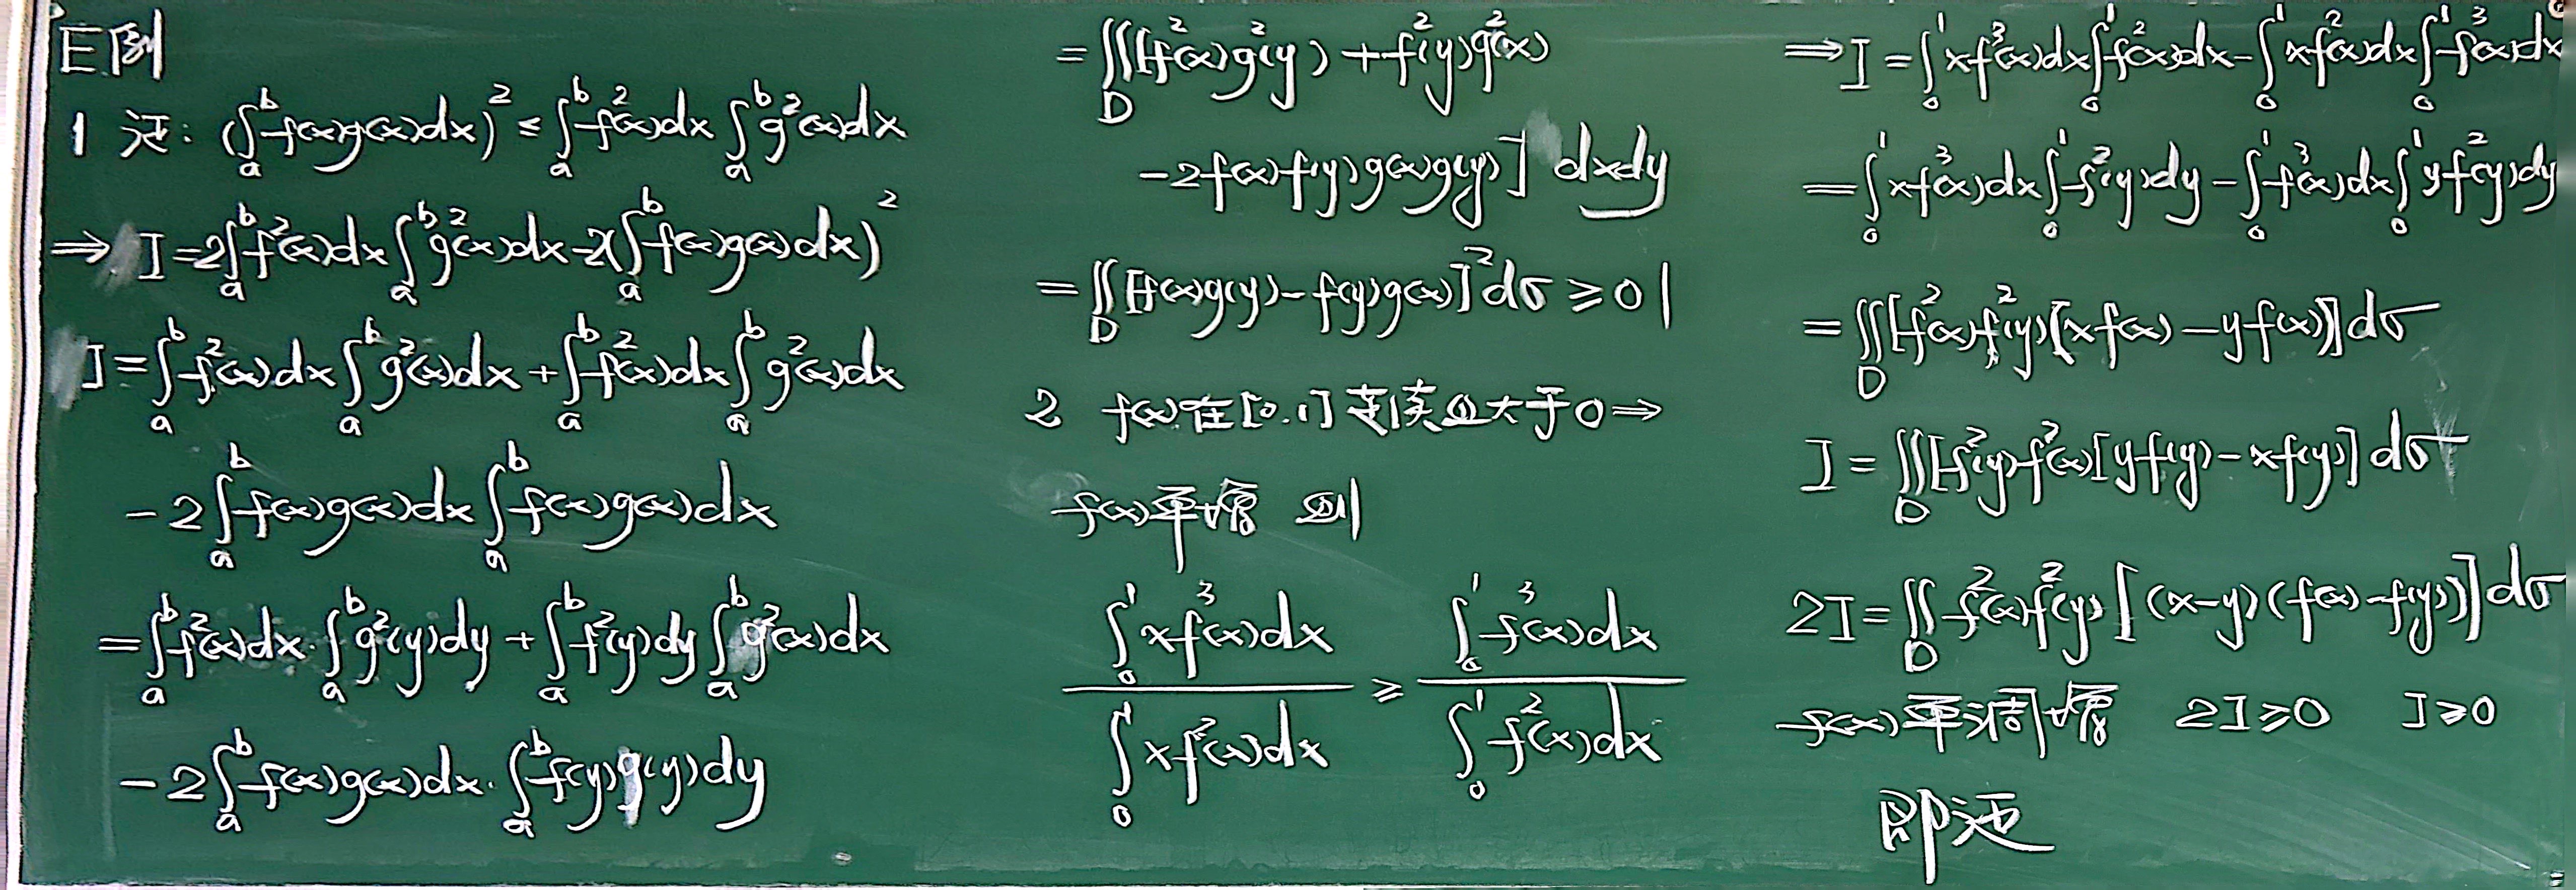 E例
1 证: (∫_a^b f(x)g(x)dx)² ≤ ∫_a^b f²(x)dx ∫_a^b g²(x)dx
⇒ I=2∫_a^b f²(x)dx ∫_a^b g²(x)dx-2(∫_a^b f(x)g(x)dx)²
I=∫_a^b f²(x)dx ∫_a^b g²(x)dx+∫_a^b f²(x)dx ∫_a^b g²(x)dx
-2∫_a^b f(x)g(x)dx ∫_a^b f(x)g(x)dx
=∫_a^b f²(x)dx·∫_a^b g²(y)dy+∫_a^b f²(y)dy ∫_a^b g²(x)dx
-2∫_a^b f(x)g(x)dx·∫_a^b f(y)g(y)dy
=∬_D [f²(x)g²(y)+f²(y)g²(x)
-2f(x)f(y)g(x)g(y)] dxdy
=∬_D [f(x)g(y)-f(y)g(x)]²dσ ≥0|
2 f(x)在[0.1]连续且大于0⇒
f(x)单增 则
∫_0^1 xf³(x)dx / ∫_0^1 xf²(x)dx ≥ ∫_0^1 f³(x)dx / ∫_0^1 f²(x)dx
⇒I=∫_0^1 xf³(x)dx∫_0^1 f²(x)dx-∫_0^1 xf²(x)dx∫_0^1 f³(x)dx
=∫_0^1 xf³(x)dx∫_0^1 f²(y)dy-∫_0^1 f³(x)dx∫_0^1 yf²(y)dy
=∬_D [f²(x)f²(y)[xf(x)-yf(x)]]dσ
I=∬_D [f²(y)f²(x)[yf(y)-xf(y)] dσ
2I=∬_D f²(x)f²(y)[(x-y)(f(x)-f(y))]dσ
f(x)单调增 2I≥0 I≥0
即证